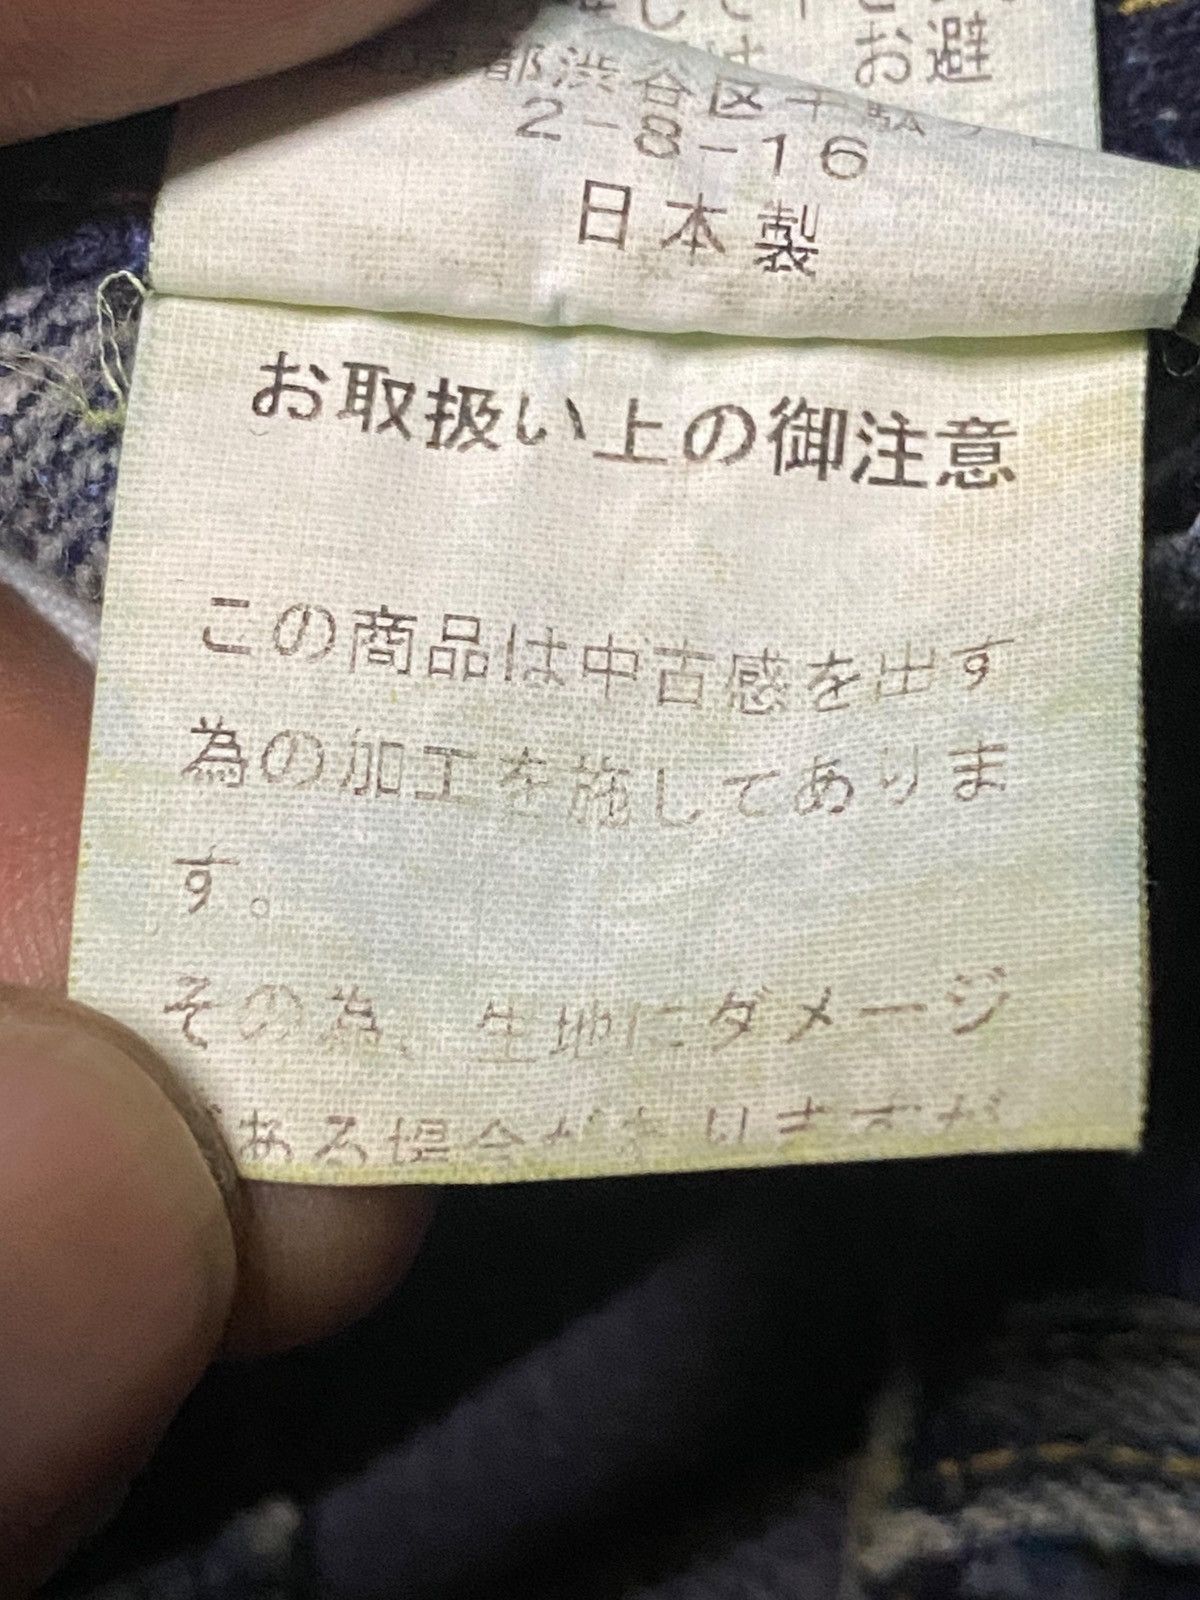 お避
都渋谷区千駄
2-8-16
日本製
お取扱い上の御注意
この商品は中古感を出す
為の加工を施してありま
す。
その為、生地にダメージ
ある場合がありますが